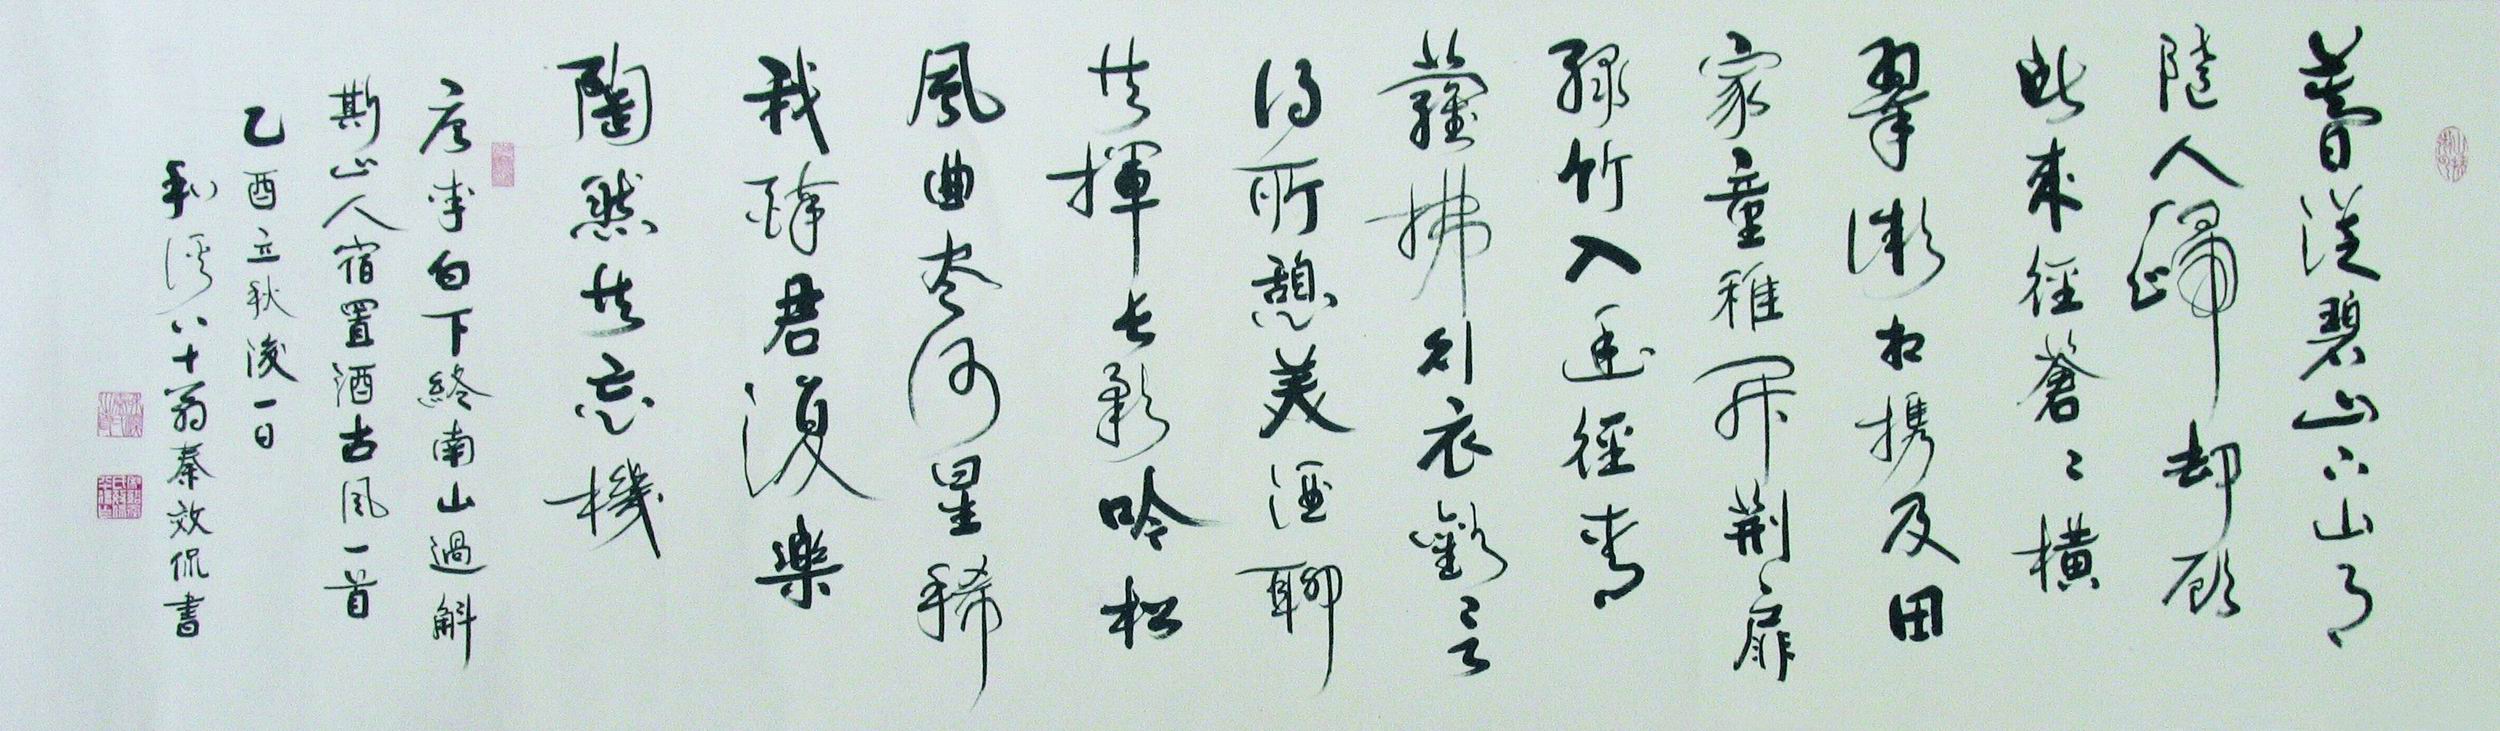 暮從碧山下山月
隨人歸却顧
所来徑蒼〻橫
翠微相携及田
家童稚開荆扉
綠竹入幽徑青
蘿拂行衣歡言
得所憩美酒聊
共揮長歌吟松
風曲尽河星稀
我醉君復樂
陶然共忘機
唐李白下終南山過斛
斯山人宿置酒古風一首
乙酉立秋後一日
溪八十翁秦效侃書